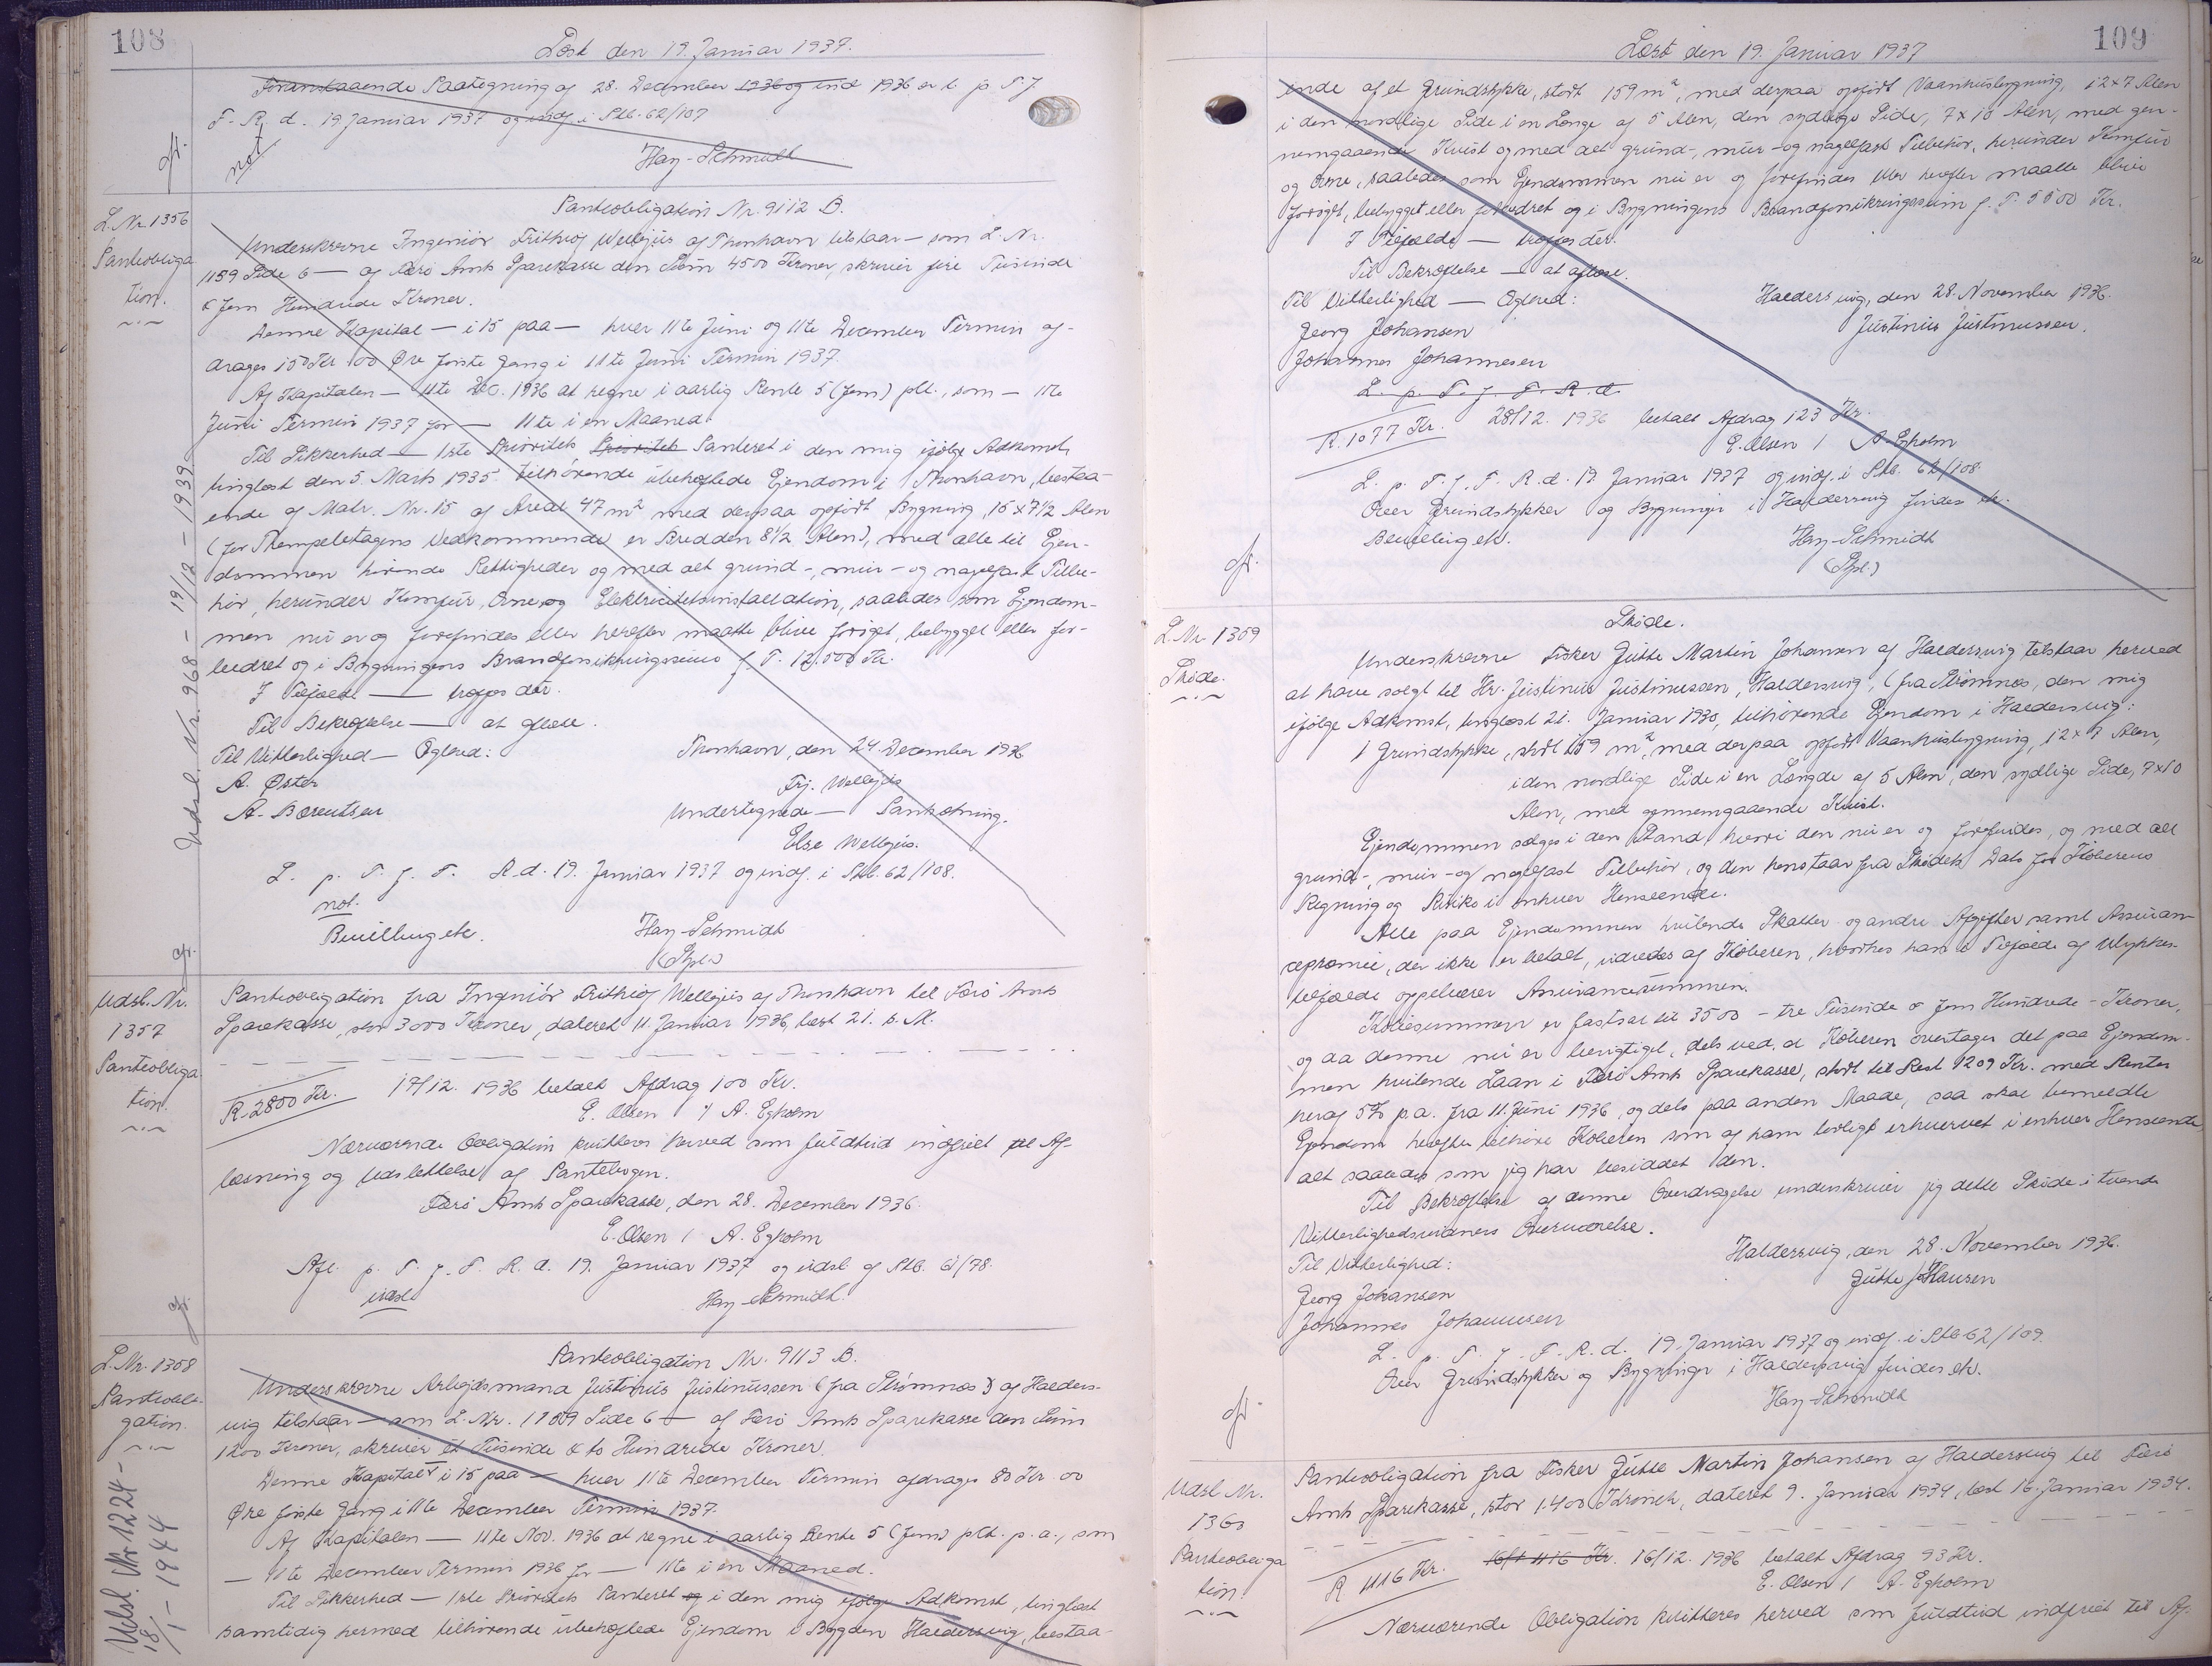 108
Læst den 19. Januar 1937.
Foranstaaende Paategning af 28. December 1936 og ind 1936 er l. p. T. f.
F. R. d. 19 Januar 1937 og indf. i Skb. 62/107
not
Hay-Schmidt
cfr.
L. Nr. 1356
Panteobliga
tion.
Udsl. Nr. 968 - 19/12 - 1939
Panteobligation Nr. 9112 B.
Underskrevne Ingeniör Frithiof Wellejus af Thorshavn tilstaar — som L. Nr.
1159 Side 6 — af Færö Amts Sparekasse den Sum 4500 Kroner, skriver fire Tusinde
& fem Hundrede Kroner.
Denne Kapital — i 15 paa — hver 11te Juni og 11te December Termin af-
drages 150 Kr. 00 Øre første Gang i 11te Juni Termin 1937.
Af Kapitalen — 11te Dec. 1936 at regne i aarlig Rente 5 (fem) pCt., som — 11te
Juni Termin 1937 for — 11te i en Maaned.
Til Sikkerhed — 1ste Prioritets Prioritets Panteret i den mig ifølge Adkomst,
tinglæst den 5. Marts 1935 tilhörende ubehæftede Ejendom i Thorshavn, bestaa-
ende af Matr. Nr. 15 af Areal 47 m² med derpaa opført Bygning, 15 x 7½ Alen
(for Stempeletagens Vedkommende er Bredden 8½ Alen), med alle til Ejen-
dommen hörende Rettigheder og med alt grund-, mur- og nagelfast Tilbe-
hör, herunder Komfur, Ovne og Elektricitetsinstallation, saaledes som Ejendom-
men nu er og forefindes eller herefter maatte blive foröget, bebygget eller for-
bedret og i Bygningens Brandforsikringssum f. T. 12.500 Kr.
I Tilfælde — træffes der.
Til Bekræftelse — at aflæse.
Til Vitterlighed — Ogleved:
Thorshavn, den 24. December 1936
A. Öster
Frj. Wellejus
A. Bærentsen
Undertegnede — Pantsætning.
Else Wellejus.
L. p. T. f. F. R. d. 19. Januar 1937 og indf. i Skb. 62/108.
not.
Bevilling etc.
Hay-Schmidt
cfr.
Udsl. Nr.
1357
Panteobliga
tion.
Panteobligation fra Ingeniör Frithiof Wellejus af Thorshavn til Færö Amts
Sparekasse, stor 3000 Kroner, dateret 11. Januar 1936, læst 21. s. M.
R. 2800 Kr. 17/12. 1936 betalt Afdrag 100 Kr.
E. Olsen / A. Egholm
Nærværende Obligation kvitteres herved som fuldtud indfriet til Af-
læsning og Udslettelse af Pantebogen.
Færö Amts Sparekasse, den 28. December 1936.
E. Olsen / A. Egholm
Afl. p. T. f. F. R. d. 19. Januar 1937 og udsl. af Skb. 61/78.
udsl.
Hay-Schmidt.
cfr.
L. Nr. 1358
Panteobli-
gation.
Udsl. Nr. 1224 -
18/1 - 1944
Panteobligation Nr. 9113 B.
Underskrevne Arbejdsmand Justinus Justinussen (fra Strömnæs) af Halders-
vig tilstaar — som L. Nr. 1159 Side 6 — af Færö Amts Sparekasse den Sum
1200 Kroner, skriver et Tusinde & to Hundrede Kroner.
Denne Kapital — i 15 paa — hver 11te December Termin afdrages 80 Kr. 00
Øre første Gang i 11te December Termin 1937.
Af Kapitalen — 11te Nov. 1936 at regne i aarlig Rente 5 (fem) pCt. p. a., som
— 11te December Termin 1936 for — 11te i en Maaned.
Til Sikkerhed — 1ste Prioritets Panteret og i den mig ifølge Adkomst, tinglæst
samtidig hermed tilhörende ubehæftede Ejendom i Bygden Haldersvig, bestaa-
109
Læst den 19. Januar 1937
ende af et Grundstykke, stort 159 m², med derpaa opført Vaanhusbygning, 12 x 7 Alen
i den nordlige Side i en Længe af 5 Alen, den sydlige Side, 7 x 10 Alen, med gen-
nemgaaende Kvist og med alt grund-, mur- og nagelfast Tilbehör, herunder Komfur
og Ovne, saaledes som Ejendommen nu er og forefindes eller herefter maatte blive
foröget, bebygget eller forbedret og i Bygningens Brandforsikringssum f. T. 5500 Kr.
I Tilfælde — træffes der.
Til Bekræftelse — at aflæse.
Til Vitterlighed — Ogleved:
Haldersvig, den 28. November 1936.
Georg Johansen
Justinus Justinussen.
Johannes Johannesen
L. p. T. f. F. R. d.
R. 1077 Kr. 28/12. 1936 betalt Afdrag 123 Kr.
E. Olsen / A. Egholm
L. p. T. f. F. R. d. 19. Januar 1937 og indf. i Skb. 62/108.
Over Grundstykker og Bygninger i Haldersvig findes etc.
Bevilling etc.
Hay-Schmidt
cfr.
L. Nr. 1359
Sköde.
Sköde.
Underskrevne Fisker Jutte Martin Johansen af Haldersvig tilstaar herved
at have solgt til Hr. Justinus Justinussen, Haldersvig, (fra Strömnæs, den mig
ifølge Adkomst, tinglæst 21. Januar 1930, tilhörende Ejendom i Haldersvig:
1 Grundstykke, stort 159 m², med derpaa opført Vaanhusbygning, 12 x 7 Alen,
i den nordlige Side i en Længde af 5 Alen, den sydlige Side, 7 x 10
Alen, med gennemgaaende Kvist.
Ejendommen sælges i den Stand, hvori den nu er og forefindes, og med alt
grund-, mur- og nagelfast Tilbehör, og den henstaar fra Sködets Dato for Köberens
Regning og Risiko i enhver Henseende.
Alle paa Ejendommen hvilende Skatter og andre Afgifter samt Assuran-
cepræmie, der ikke er betalt, udredes af Köberen, hvorhos han i Tilfælde af Ulykkes-
tilfælde oppebærer Assurancesummen.
Köbesummen er fastsat til 3500 - tre Tusinde & fem Hundrede - Kroner,
og da denne nu er berigtiget, dels ved, at Köberen overtager det paa Ejendom-
men hvilende Laan i Færö Amts Sparekasse, stort til Rest 1209 Kr. med Renter
heraf 5% p.a. fra 11. Juni 1936, og dels paa anden Maade, saa skal bemeldte
Ejendom herefter tilhöre Köberen som af ham lovligt erhvervet i enhver Henseende
alt saaledes som jeg har besiddet den.
Til Bekræftelse af denne Overdragelse underskriver jeg dette Sköde i tvende
Vitterlighedsvidners Overværelse.
Haldersvig, den 28. November 1936.
Til Vitterlighed:
Georg Johansen
Johannes Johannesen
L. p. T. f. F. R. d. 19. Januar 1937 og indf. i Skb. 62/109.
Over Grundstykker og Bygninger i Haldersvig findes etc.
Hay-Schmidt
cfr.
Udsl. Nr.
1360
Panteobliga
tion.
Panteobligation fra Fisker Jutte Martin Johansen af Haldersvig til Færö
Amts Sparekasse, stor 1.400 Kroner, dateret 9. Januar 1934, læst 16. Januar 1934.
R 1116 Kr. 16/12. 1936 betalt Afdrag 93 Kr.
E. Olsen / A. Egholm
Nærværende Obligation kvitteres herved som fuldtud indfriet til Af-